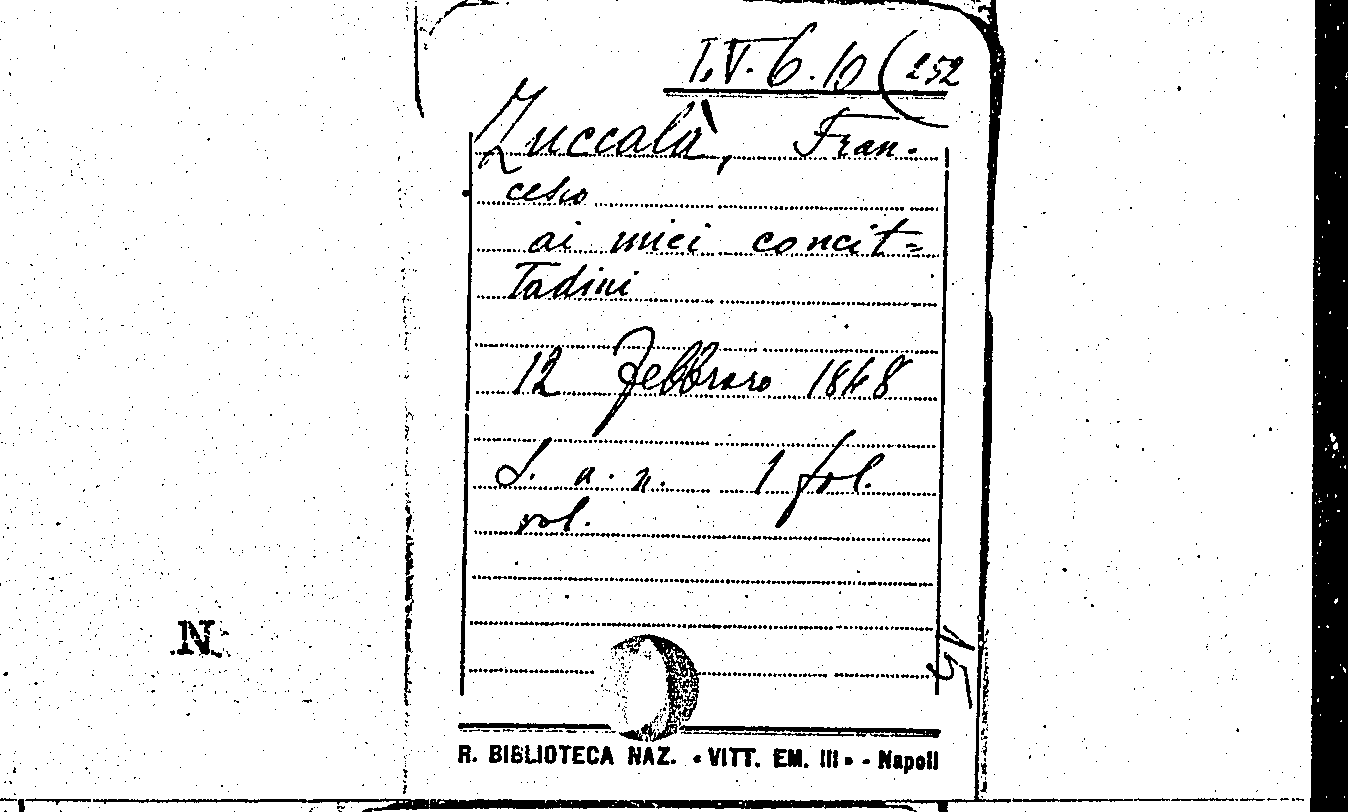 I.V. 6.10 (252
Zuccalà, Fran-
cesco
ai miei concit=
tadini
12 Febbraro 1848
S. a. n. 1 fol.
vol.
N
R. BIBLIOTECA NAZ. «VITT. EM. III» - Napoli